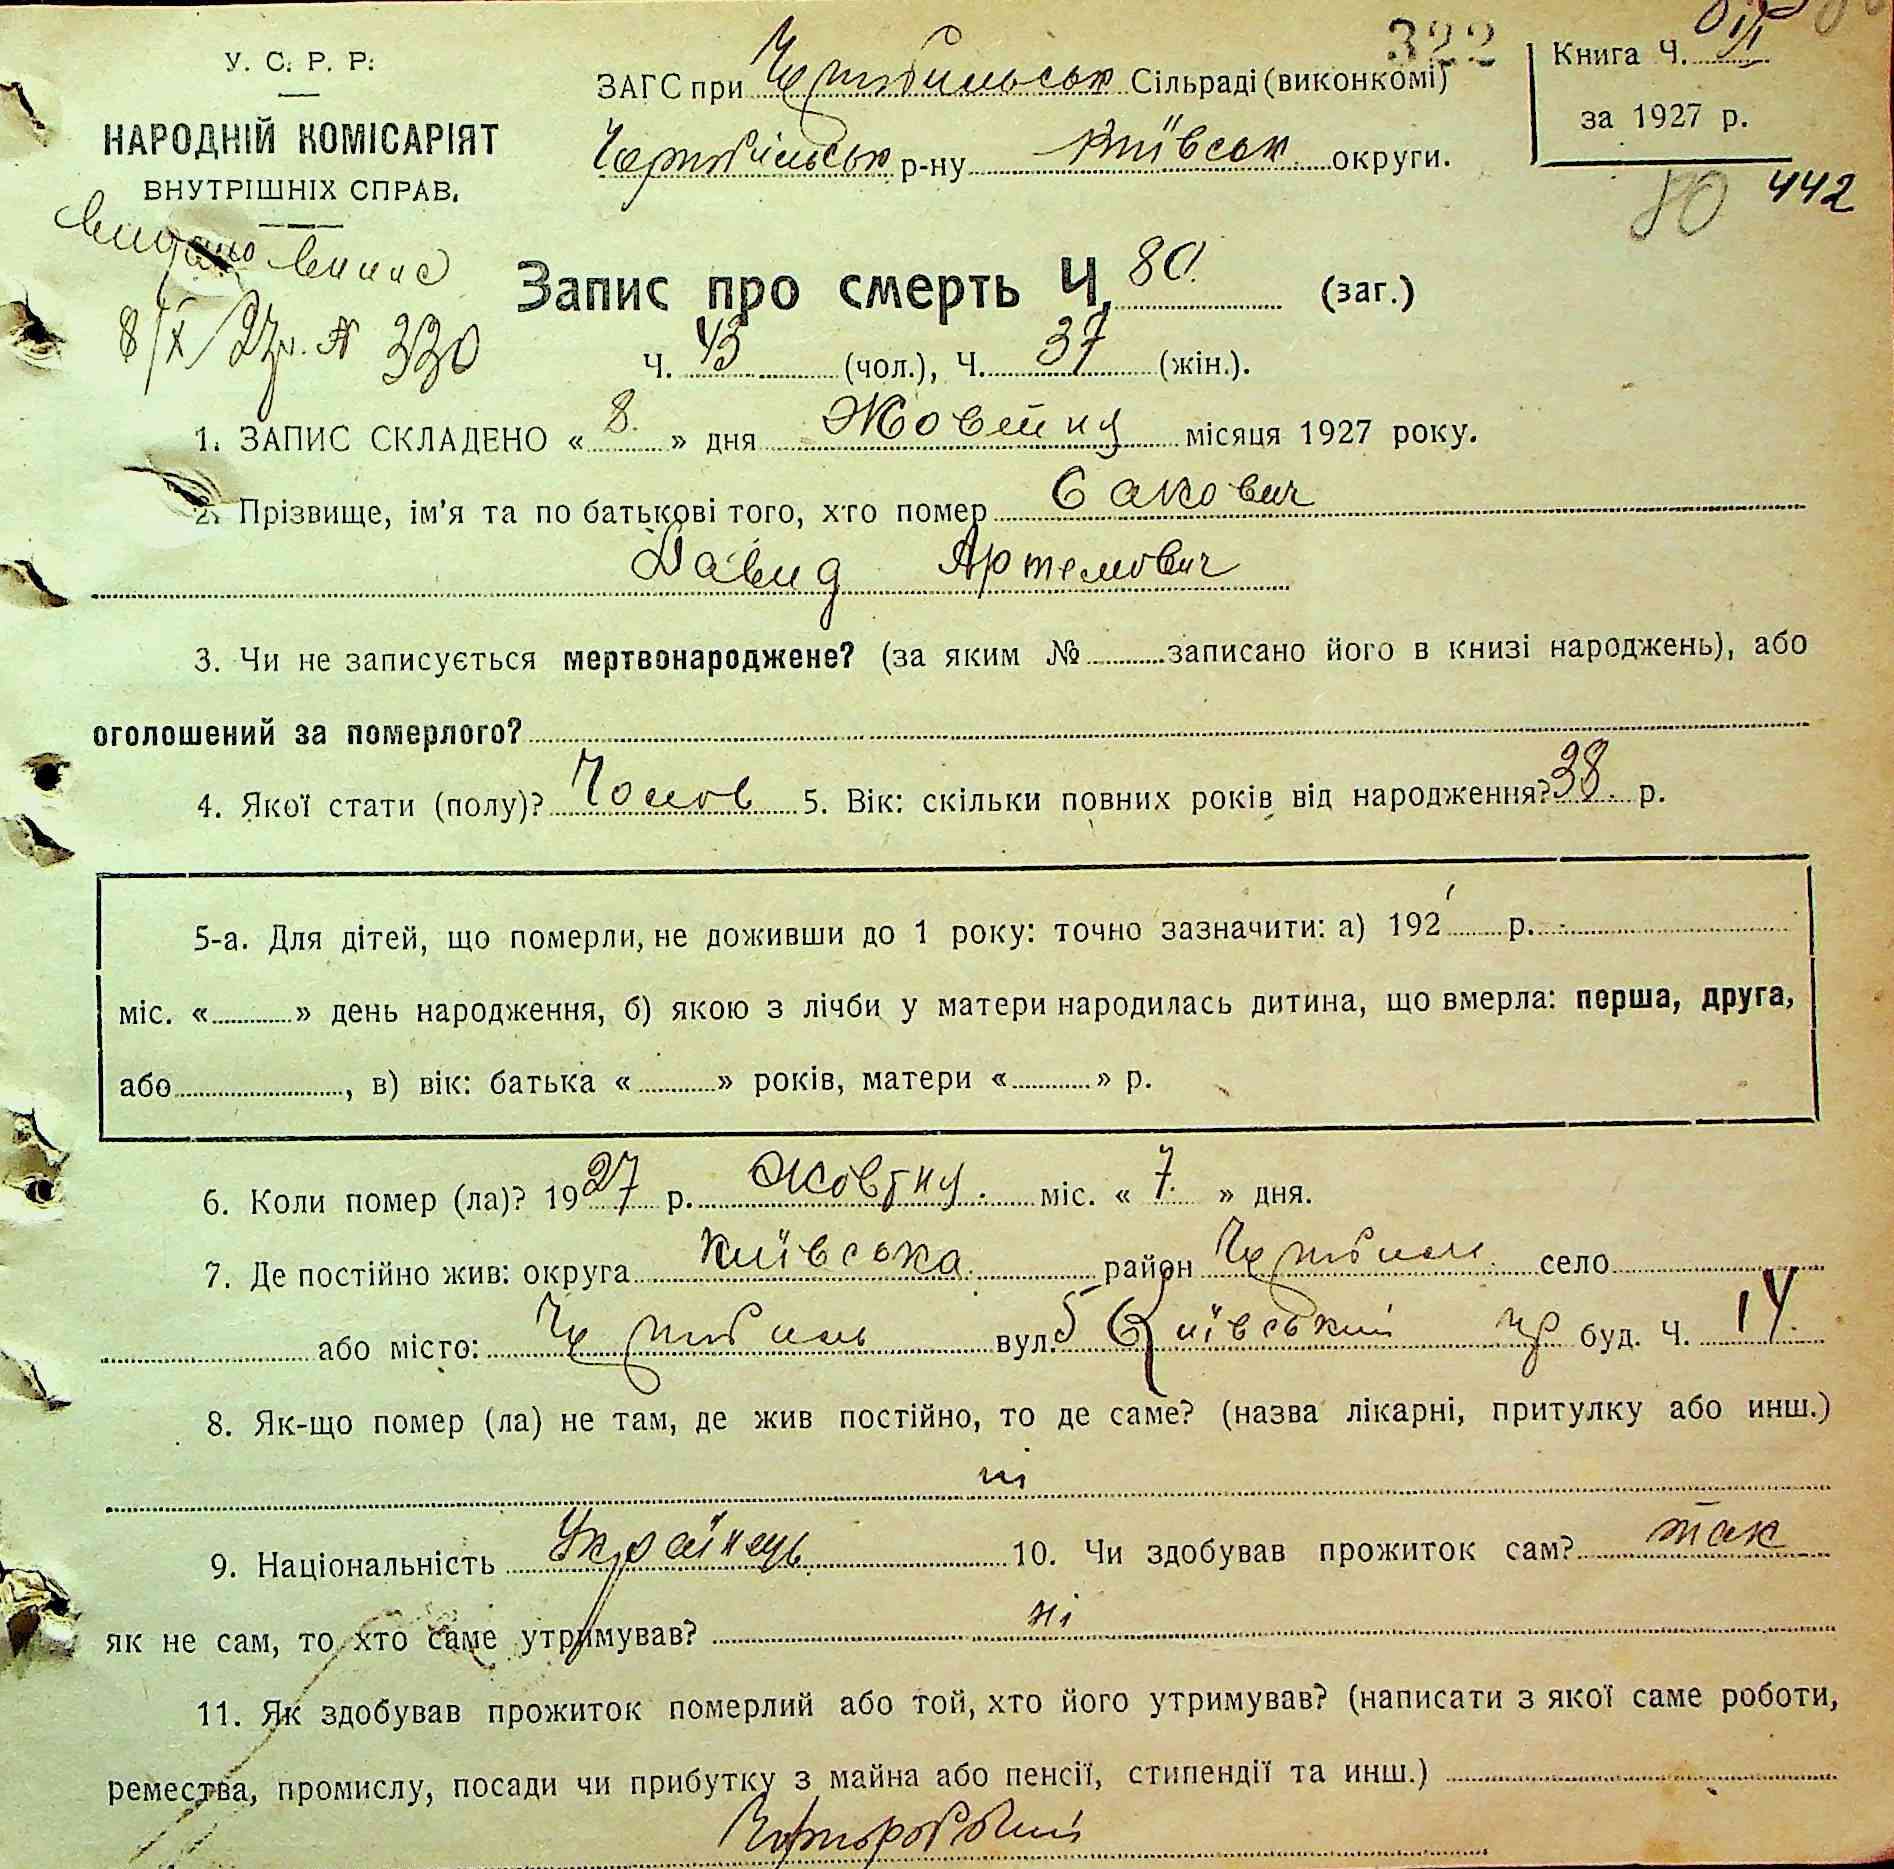 322
У. С. Р. Р.
ЗАГС при Чорнобильськ Сільраді (виконкомі)
Книга Ч.
за 1927 р.
НАРОДНІЙ КОМІСАРІЯТ
Чорнобильськ р-ну Київськ округи.
ВНУТРІШНІХ СПРАВ.
80 442
Видано
8/X 27 р. № 330
Запис про смерть Ч. 80 (заг.)
Ч. 43 (чол.), Ч. 37 (жін.).
1. ЗАПИС СКЛАДЕНО « 8 » дня Жовтня місяця 1927 року.
2. Прізвище, ім'я та по батькові того, хто помер Сакович
Давид Артемович
3. Чи не записується мертвонароджене? (за яким № записано його в книзі народжень), або
оголошений за померлого?
4. Якої стати (полу)? Чолов 5. Вік: скільки повних років від народження? 38 р.
5-а. Для дітей, що померли, не доживши до 1 року: точно зазначити: а) 192 р.
міс. « » день народження, б) якою з лічби у матери народилась дитина, що вмерла: перша, друга,
або , в) вік: батька « » років, матери « » р.
6. Коли помер (ла)? 1927 р. Жовтня міс. « 7 » дня.
7. Де постійно жив: округа Київська район Чорнобиль село
або місто: Чорнобиль вул. Київський буд. Ч. 14
8. Як-що помер (ла) не там, де жив постійно, то де саме? (назва лікарні, притулку або инш.)
ні
9. Національність Українець 10. Чи здобував прожиток сам? так
як не сам, то хто саме утримував? ні
11. Як здобував прожиток померлий або той, хто його утримував? (написати з якої саме роботи,
ремества, промислу, посади чи прибутку з майна або пенсії, стипендії та инш.)
Чорноробочий